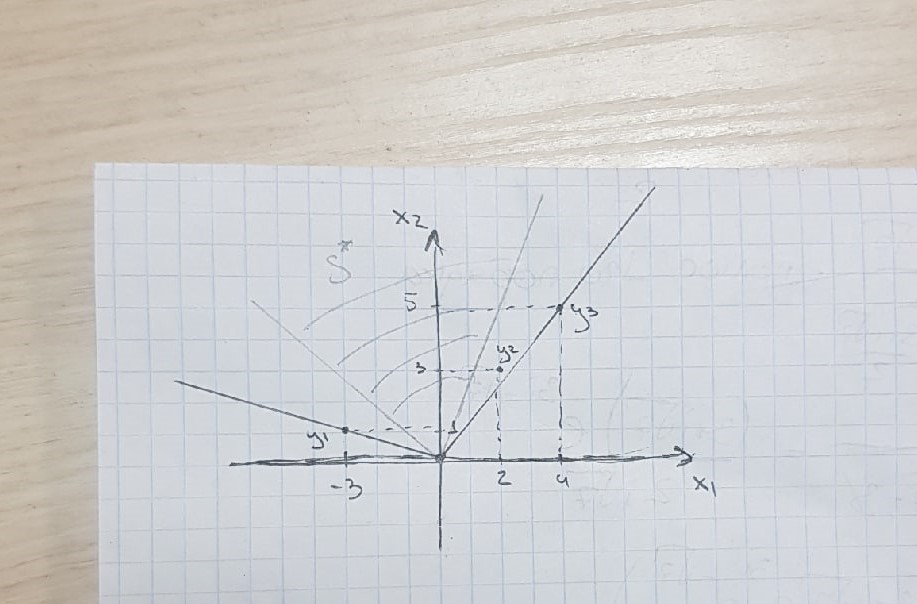 x2
S*
5
y3
y2
3
y1
1
-3
2
4
x1